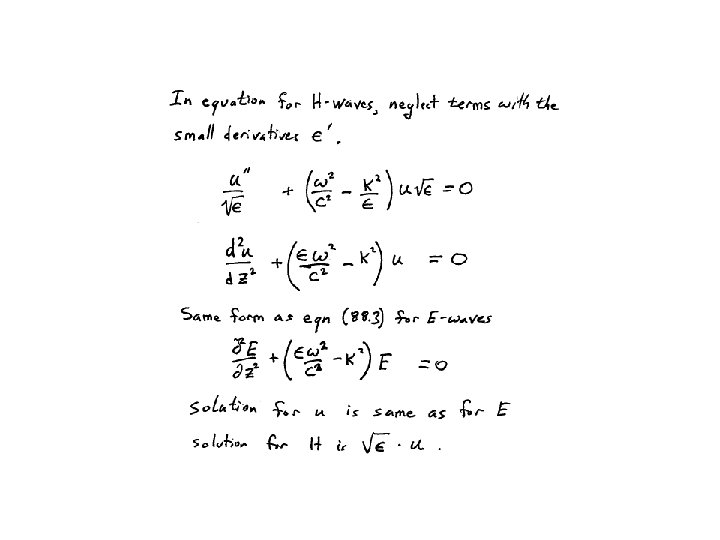 In equation for H-waves, neglect terms with the
small derivatives ϵ′.
u″/√ϵ + (ω²/c² − K²/ϵ) u√ϵ = 0
d²u/dz² + (ϵω²/c² − K²) u = 0
Same form as eqn (88.3) for E-waves
∂²E/∂z² + (ϵω²/c² − K²) E = 0
Solution for u is same as for E
solution for H is √ϵ · u.